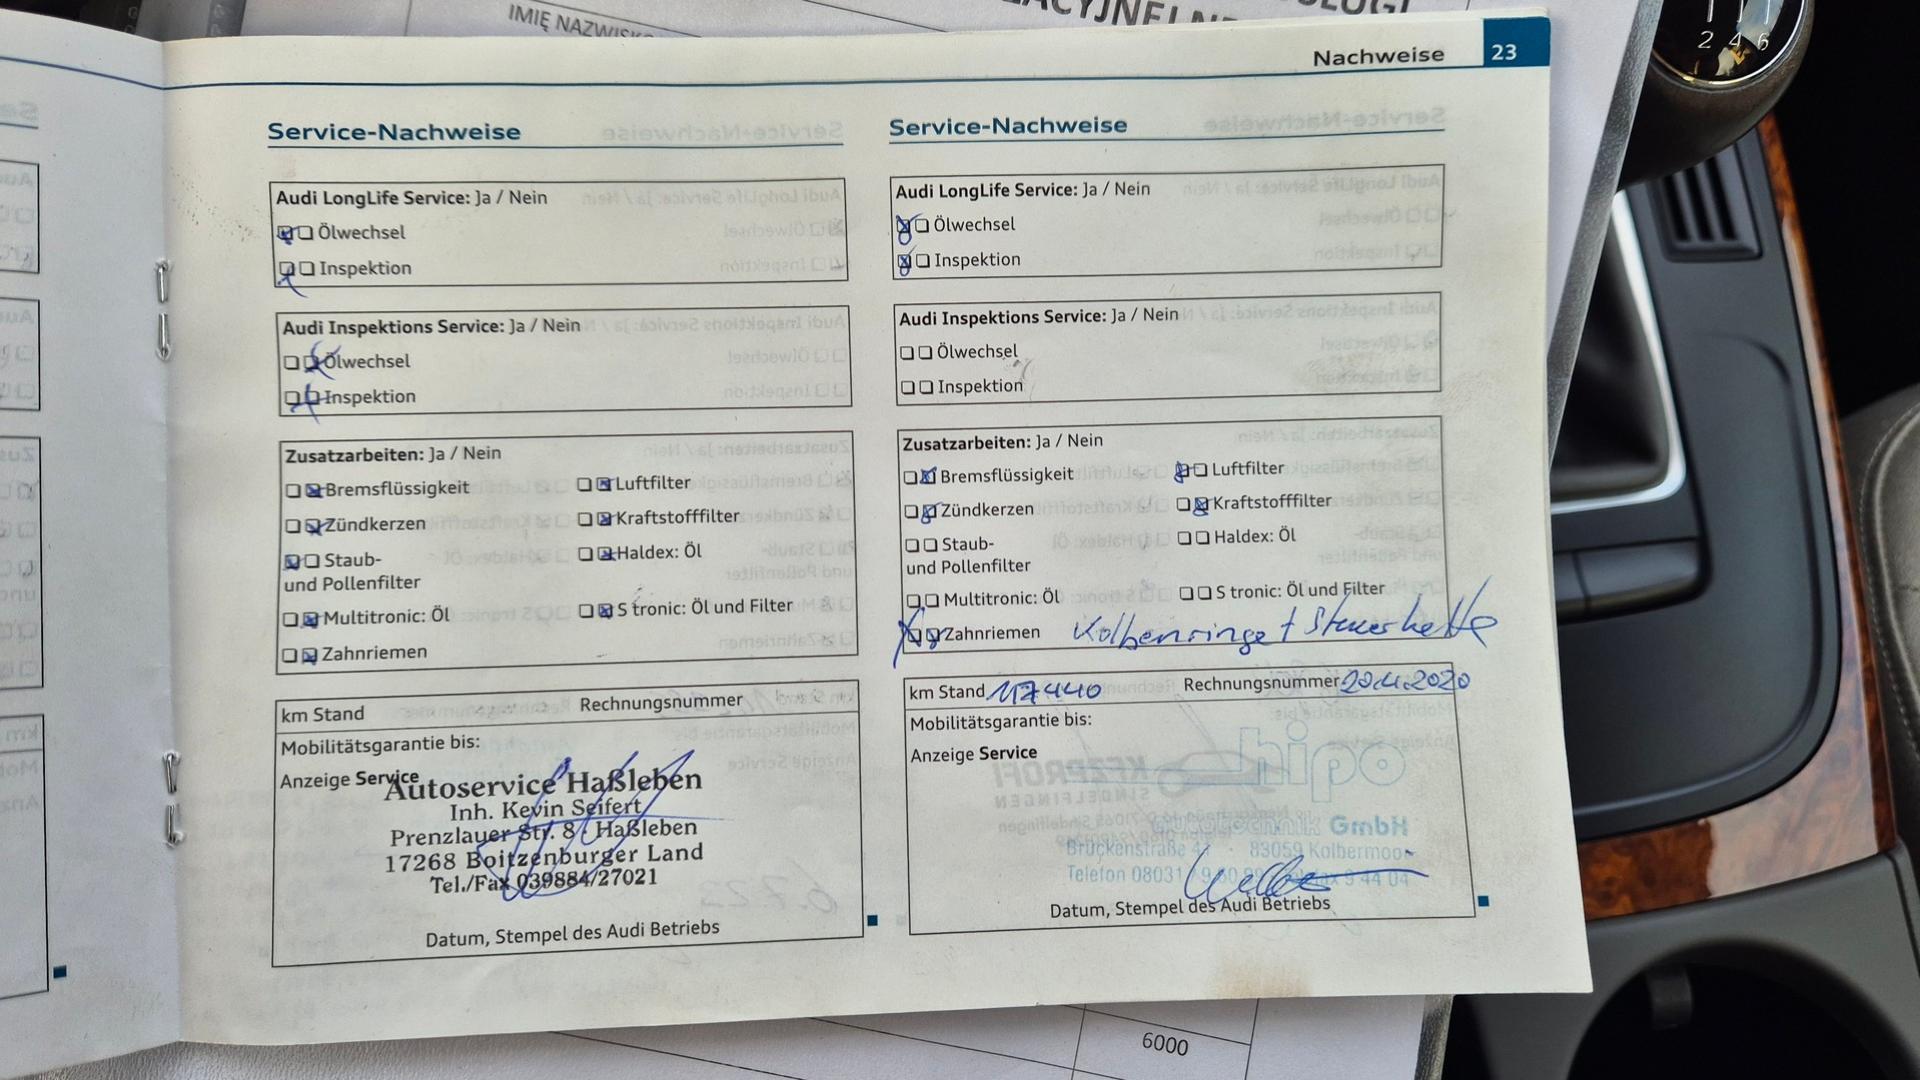 IMIĘ NAZWISKO
Nachweise 23
2 4 6
Service-Nachweise
Audi LongLife Service: Ja / Nein
Ölwechsel
Inspektion
Audi Inspektions Service: Ja / Nein
Ölwechsel
Inspektion
Zusatzarbeiten: Ja / Nein
Bremsflüssigkeit Luftfilter
Zündkerzen Kraftstofffilter
Staub- Haldex: Öl
und Pollenfilter
Multitronic: Öl S tronic: Öl und Filter
Zahnriemen
km Stand Rechnungsnummer
Mobilitätsgarantie bis:
Anzeige Service
Autoservice Haßleben
Inh. Kevin Seifert
Prenzlauer Str. 8 Haßleben
17268 Boitzenburger Land
Tel./Fax 039884/27021
Datum, Stempel des Audi Betriebs
Service-Nachweise
Audi LongLife Service: Ja / Nein
Ölwechsel
Inspektion
Audi Inspektions Service: Ja / Nein
Ölwechsel
Inspektion
Zusatzarbeiten: Ja / Nein
Bremsflüssigkeit Luftfilter
Zündkerzen Kraftstofffilter
Staub- Haldex: Öl
und Pollenfilter
Multitronic: Öl S tronic: Öl und Filter
Zahnriemen Kolbenringe + Steuerkette
km Stand 117440 Rechnungsnummer 20.11.2020
Mobilitätsgarantie bis:
Anzeige Service
hipo
GmbH
Brückenstraße 83059 Kolbermoor
Telefon 08031
Datum, Stempel des Audi Betriebs
6000